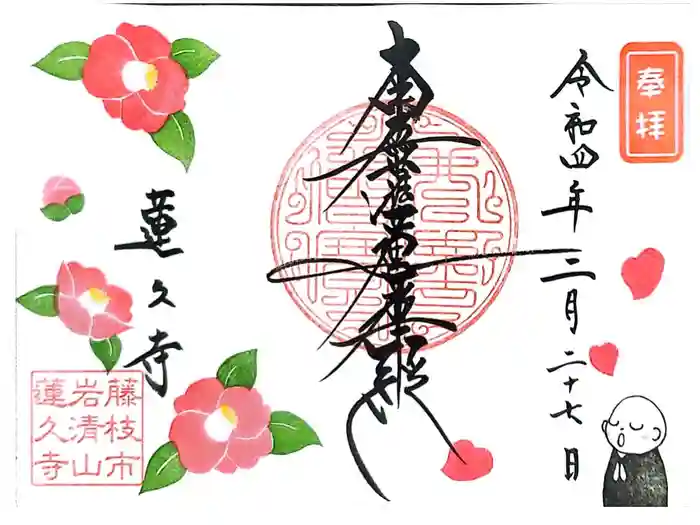 奉拝
令和四年三月二十七日
南無妙法蓮華経
蓮久寺
藤枝市
岩清山
蓮久寺